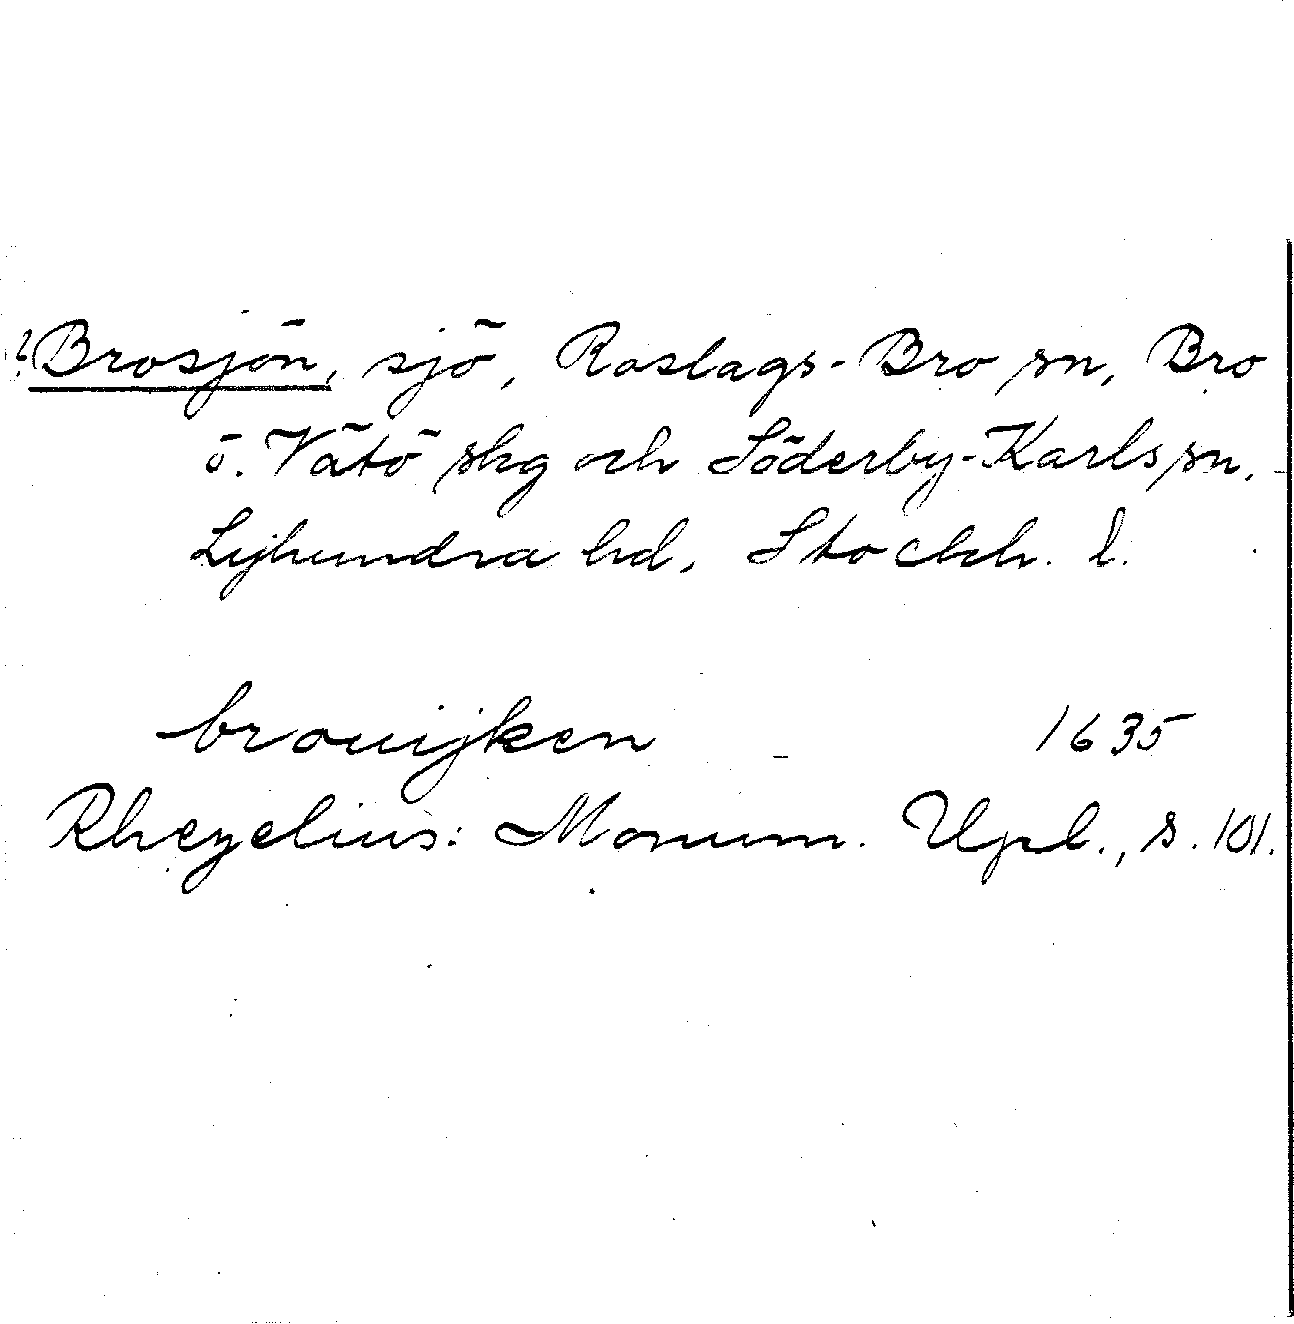 ? Brosjön, sjö, Roslags-Bro sn, Bro
o. Vätö skg och Söderby-Karls sn.
Lyhundra hd, Stockh. l.
brouijken 1635
Rhezelius: Monum. Upl., s. 101.